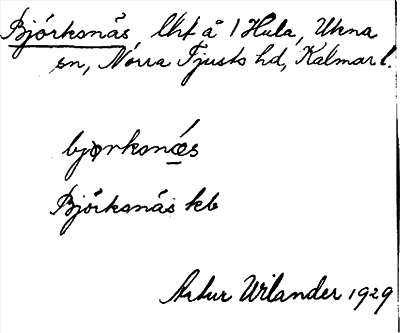 Björksnäs, lht å 1 Hula, Ukna
sn, Norra Tjusts hd, Kalmar l.
bjørksnæs
Björksnäs kb
Artur Wilander 1929